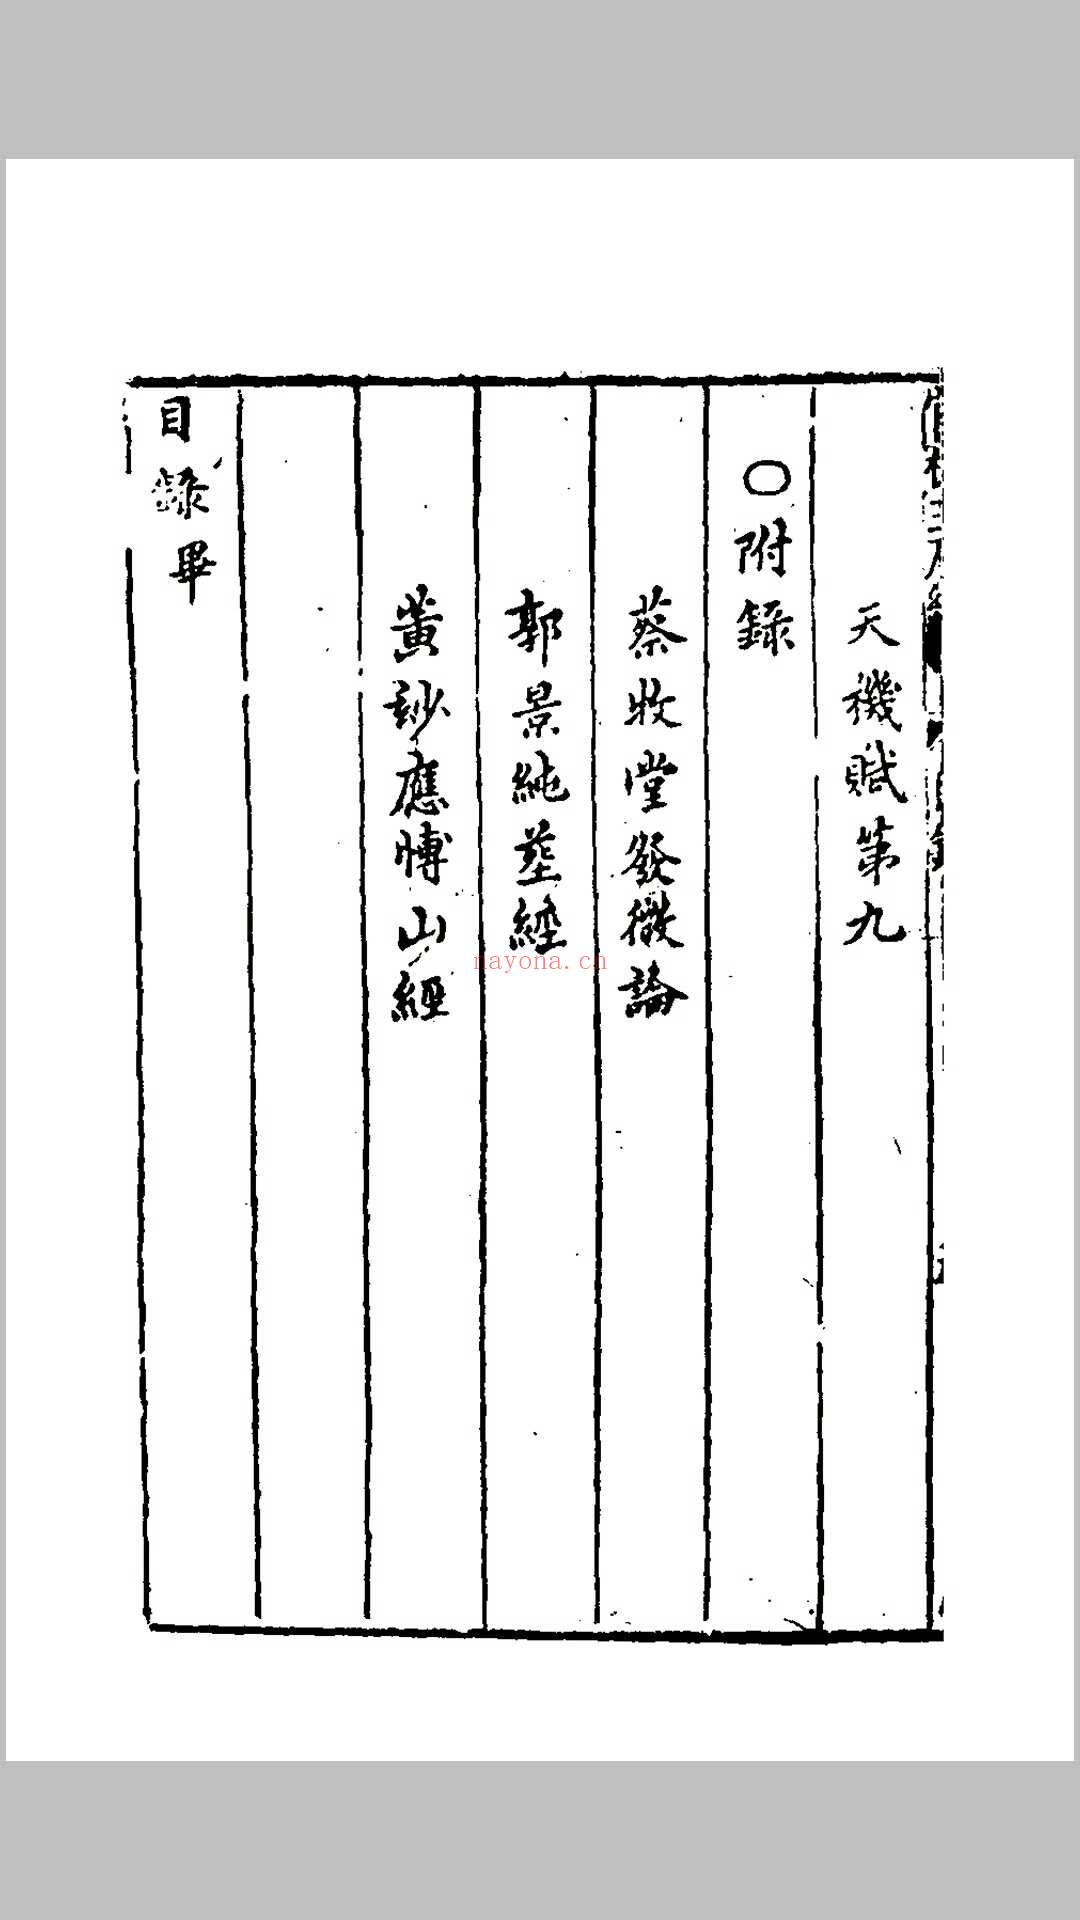 天機賦第九
〇附錄
蔡牧堂發微論
郭景純葬經
黃玅應博山經
目錄畢
nayona.cn